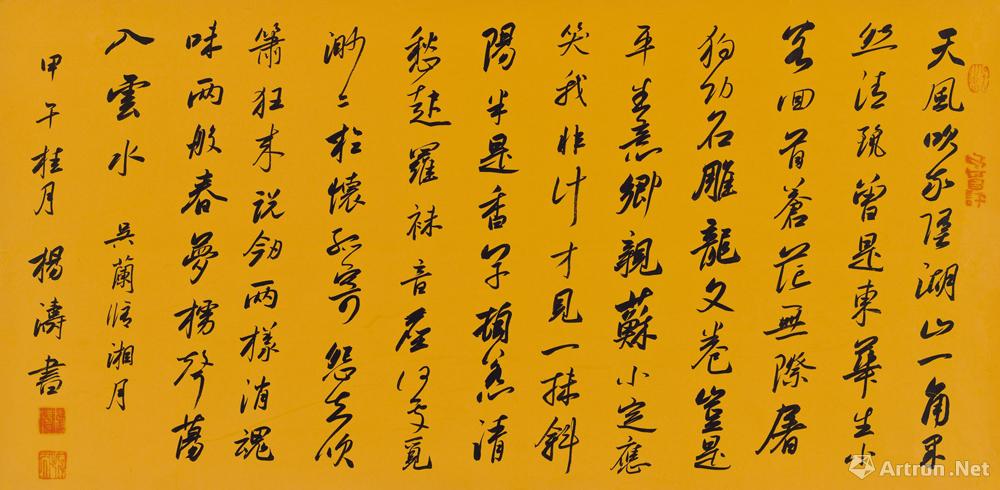 天風吹我墮湖山一角果
然清麗曾是東華生小
客回首蒼茫無際屠
狗功名雕龍文卷豈是
平生意鄉親蘇小定應
笑我非計才見一抹斜
陽半是香草頓惹清
愁起羅襪音塵何處覓
渺渺於懷孤寄怨去吹
簫狂來說劍兩樣消魂
味兩般春夢櫓聲蕩
入雲水 吳蘭修湘月
甲午桂月 楊濤書
Artron.Net